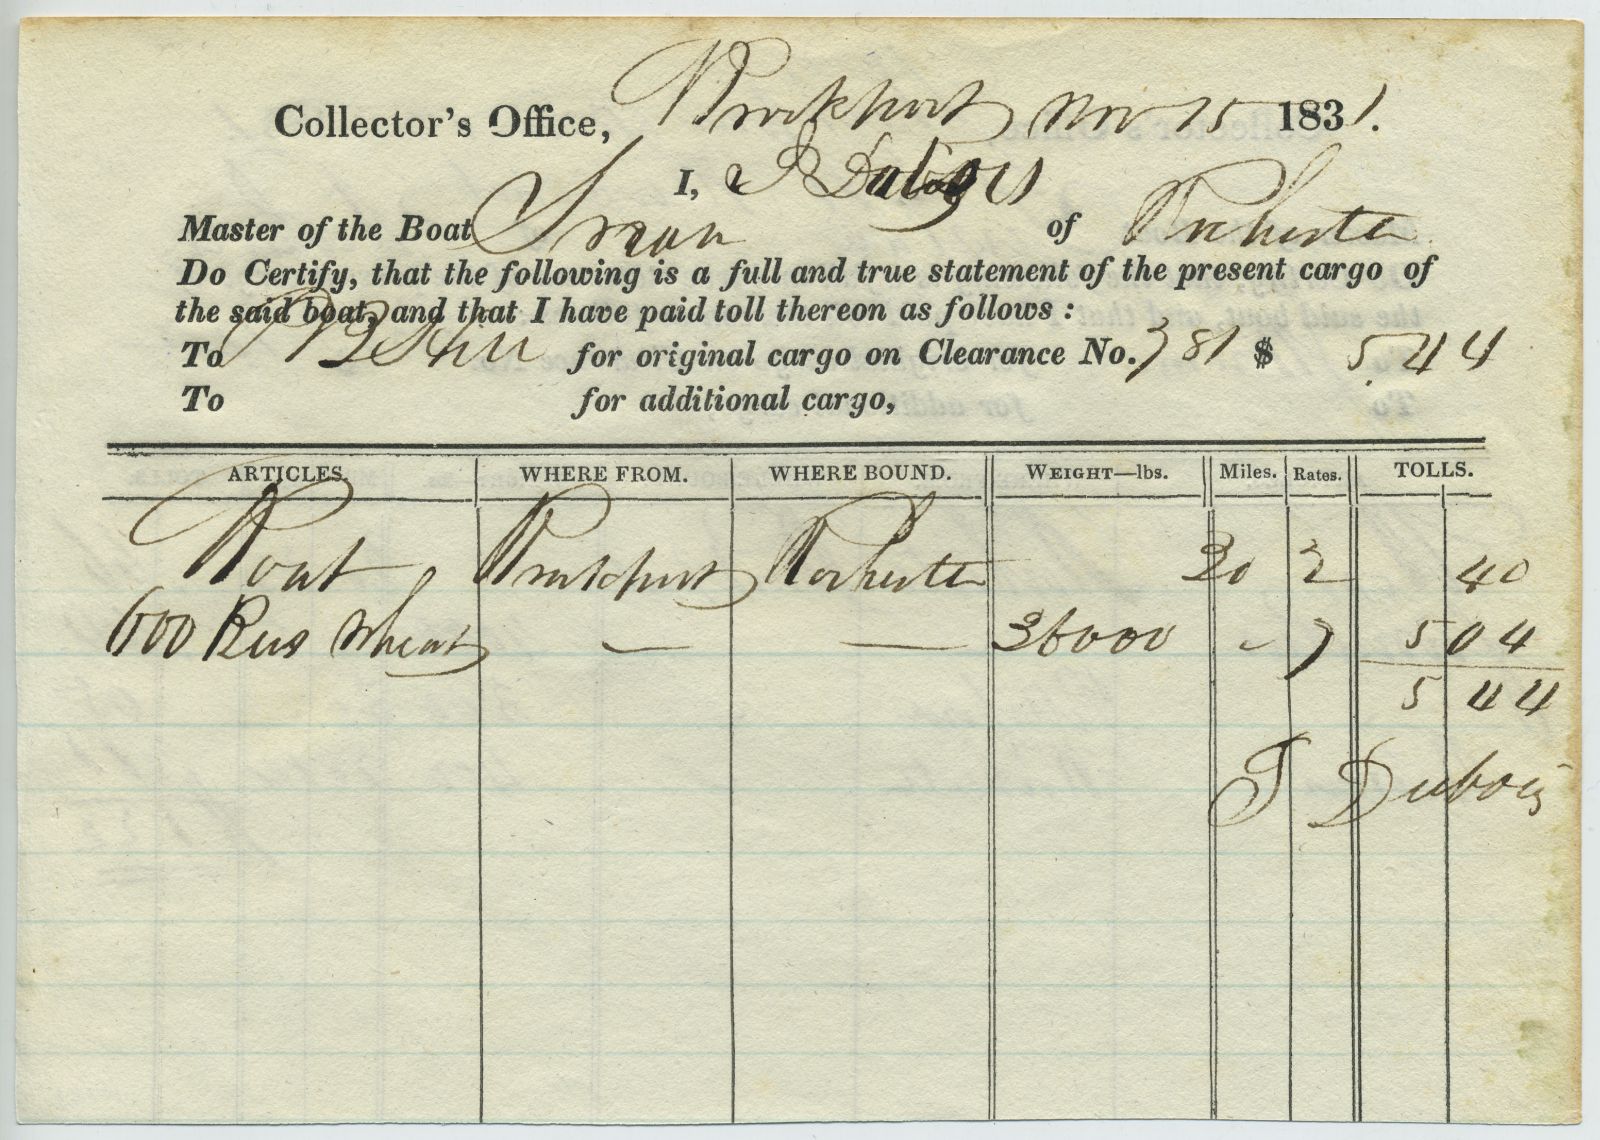 Collector's Office, Brockport Nov 15 1831.
I, J Dubois
Master of the Boat Swan of Rochester
Do Certify, that the following is a full and true statement of the present cargo of
the said boat, and that I have paid toll thereon as follows :
To for original cargo on Clearance No. 781 $ 5.44
To for additional cargo,
ARTICLES. WHERE FROM. WHERE BOUND. WEIGHT—lbs. Miles. Rates. TOLLS.
Boat Brockport Rochester 20 2 40
600 Bus Wheat — — 36000 - 7 5 04
5 44
J Dubois